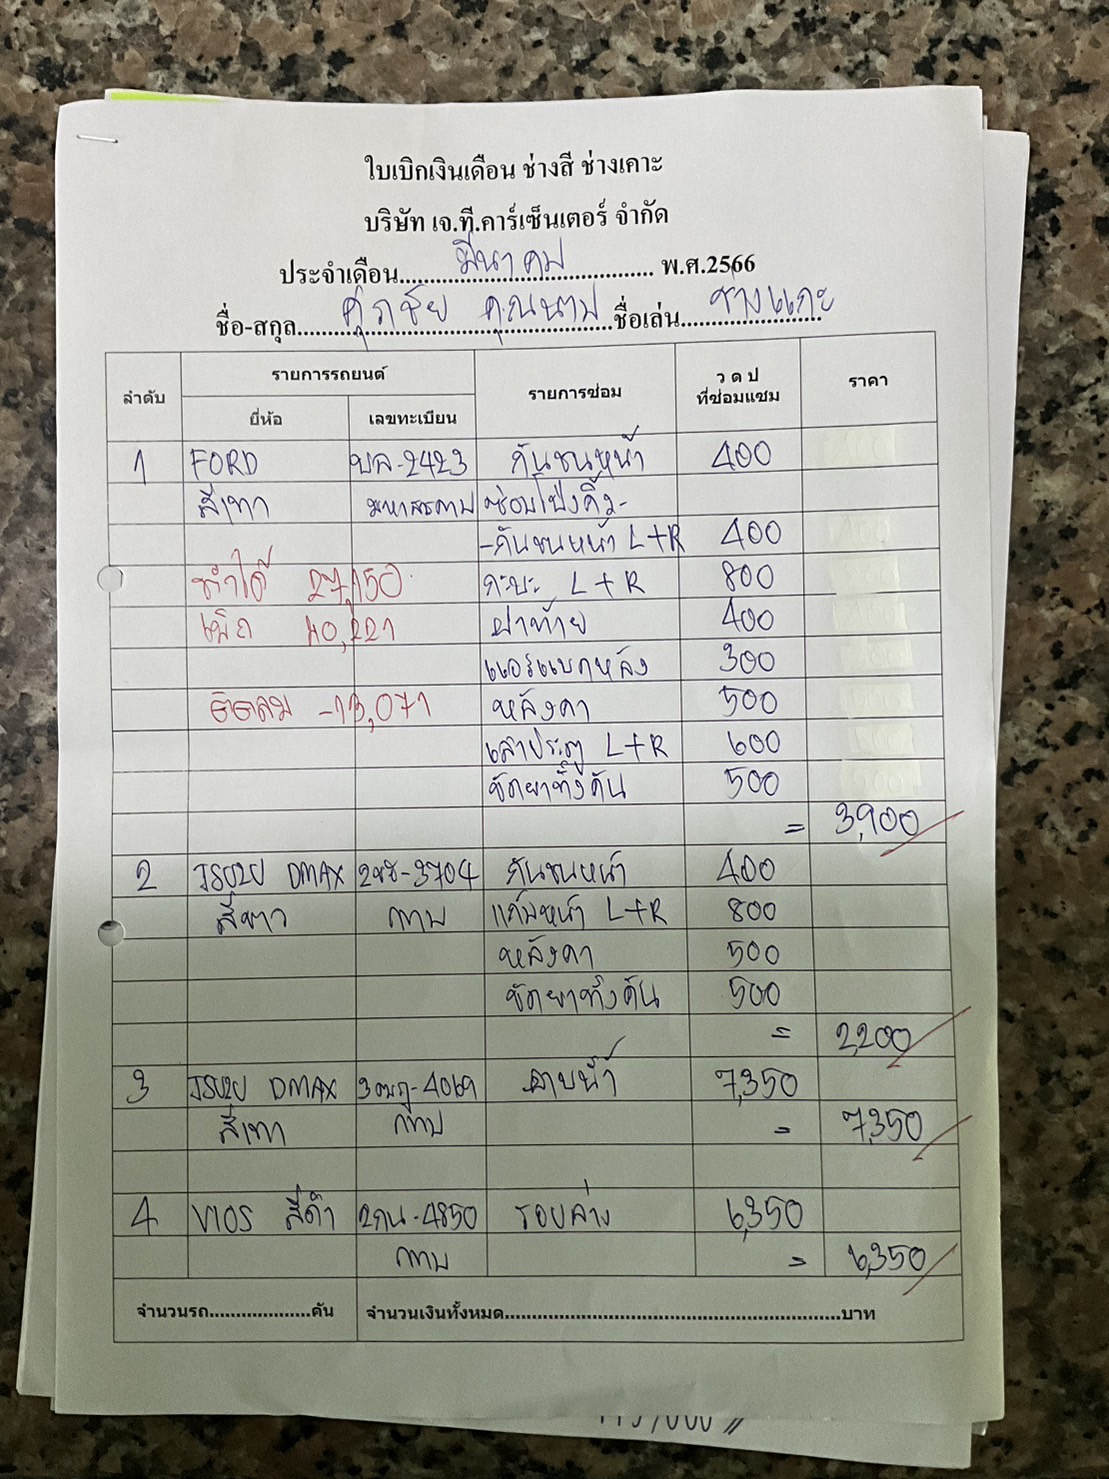 ใบเบิกเงินเดือน ช่างสี ช่างเคาะ
บริษัท เจ.ที.คาร์เซ็นเตอร์ จำกัด
ประจำเดือน.....มีนาคม..... พ.ศ.2566
ชื่อ-สกุล.....ศุภชัย คุณนาม.....ชื่อเล่น.....ช่างแกะ.....
ลำดับ รายการรถยนต์ รายการซ่อม ว ด ป ที่ซ่อมแซม ราคา
ยี่ห้อ เลขทะเบียน
1 FORD บล-2423 กันชนหน้า 400
สีเทา มหาสารคาม ซ่อมโป่งคิ้ว-
-กันชนหน้า L+R 400
ทำได้ 27,150 กะบะ L+R 800
เบิก 40,221 ฝาท้าย 400
แคปหลัง 300
ติดลม -13,071 หลังคา 500
เสาประตู L+R 600
ขัดยาทั้งคัน 500
= 3,900
2 ISUZU DMAX 3704 กันชนหน้า 400
สีขาว กทม แก้มหน้า L+R 800
หลังคา 500
ขัดยาทั้งคัน 500
= 2,200
3 ISUZU DMAX 3ฒฎ-4069 คาบน้ำ 7,350
สีเทา กทม = 7,350
4 VIOS สีดำ 2กน-4850 รอบล่าง 6,350
กทม = 6,350
จำนวนรถ...................คัน จำนวนเงินทั้งหมด...................................................................บาท